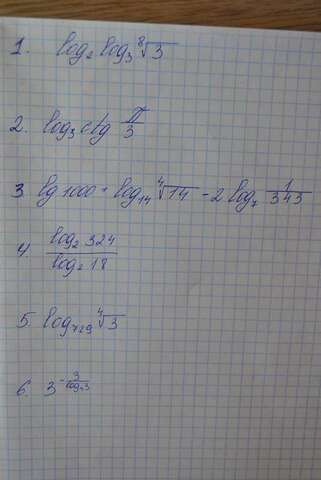 1. log₂ log₃ ⁸√3
2. log₃ ctg π/3
3 lg 1000 + log₁₄ ⁴√14 - 2 log₇ 1/343
4. log₂ 324 / log₂ 18
5. log₇₂₉ ⁴√3
6. 3^(-3/log₂3)